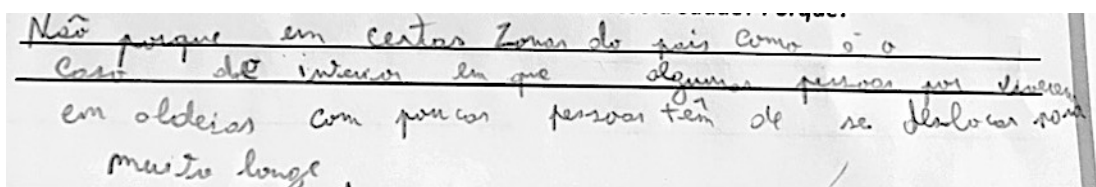 Não porque em certas zonas do país como é o
caso do interior em que algumas pessoas por viverem
em aldeias com poucas pessoas têm de se deslocar para
muito longe.